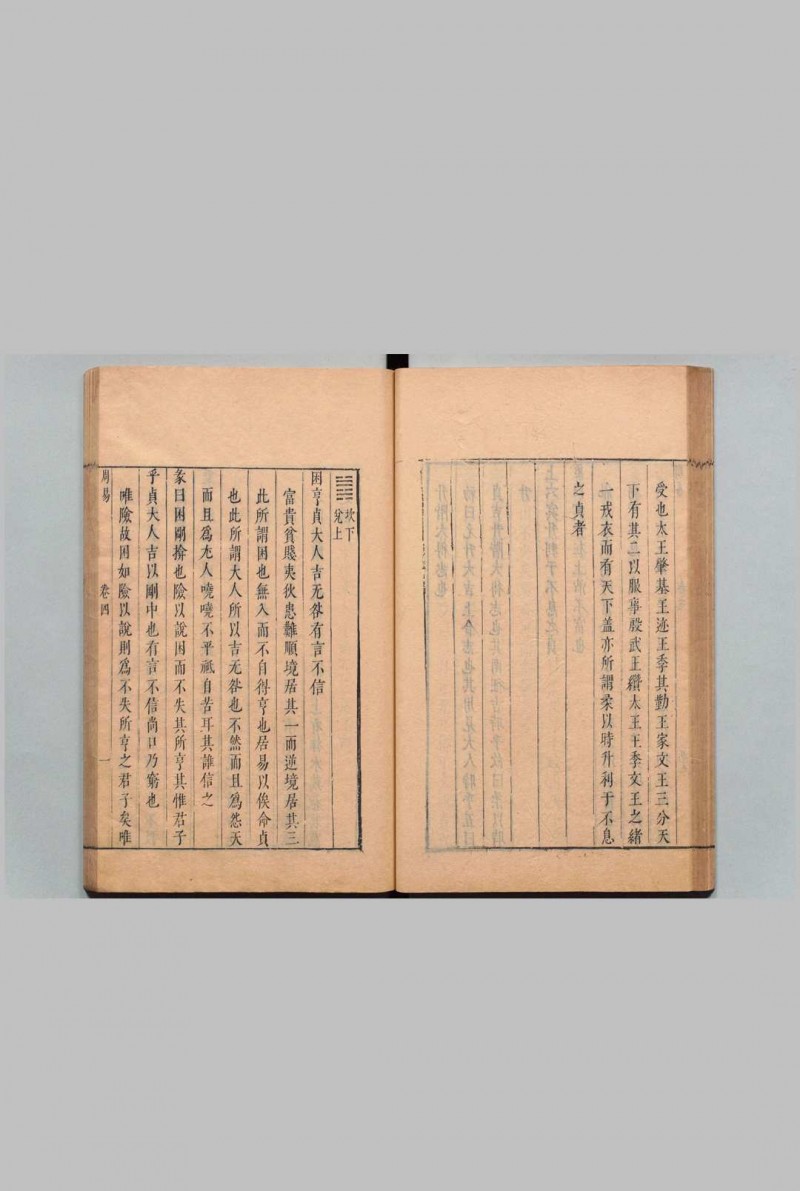 受也太王肇基王迹王季其勤王家文王三分天
下有其二以服事殷武王纘太王王季文王之緒
一戎衣而有天下蓋亦所謂柔以時升利于不息
之貞者
坎下
兌上
困亨貞大人吉无咎有言不信
富貴貧賤夷狄患難順境居其一而逆境居其三
此所謂困也無入而不自得亨也居易以俟命貞
也此所謂大人所以吉无咎也不然而且爲怨天
而且爲尤人嘵嘵不平祗自苦耳其誰信之
彖曰困剛揜也險以說困而不失其所亨其惟君子
乎貞大人吉以剛中也有言不信尚口乃窮也
唯險故困如險以說則爲不失所亨之君子矣唯
周易 卷四 一